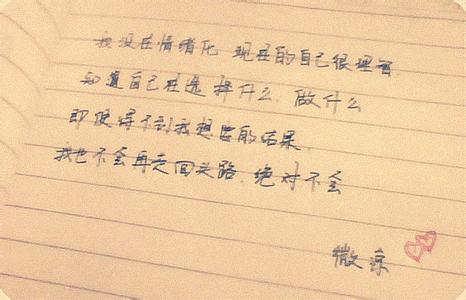 我没在情绪化 现在的自己很理智
知道自己在选择什么 做什么
即使得不到我想要的结果
我也不会再走回头路 绝对不会
微凉